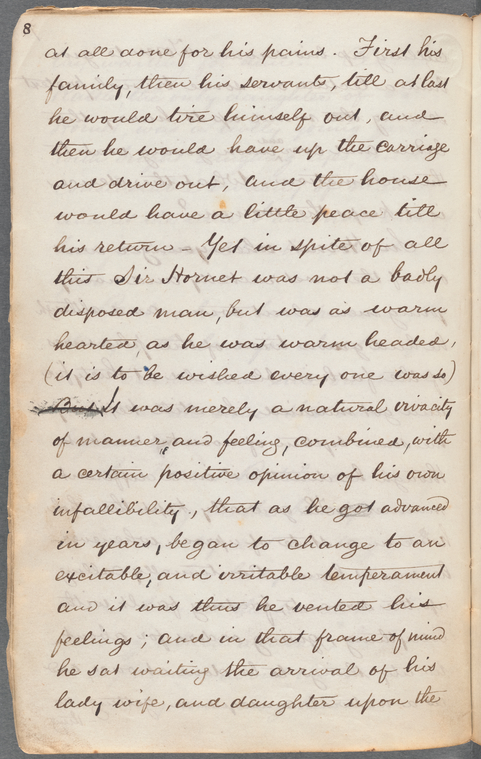 8
at all done for his pains. First his
family, then his servants, till at last
he would tire himself out, and
then he would have up the carriage
and drive out, and the house
would have a little peace till
his return – Yet in spite of all
this Sir Hornet was not a badly
disposed man, but was as warm
hearted, as he was warm headed,
(it is to be wished every one was so)
But It was merely a natural vivacity
of manner, and feeling, combined, with
a certain positive opinion of his own
infallibility, that as he got advanced
in years, began to change to an
excitable, and irritable temperament
and it was thus he vented his
feelings; and in that frame of mind
he sat waiting the arrival of his
lady wife, and daughter upon the